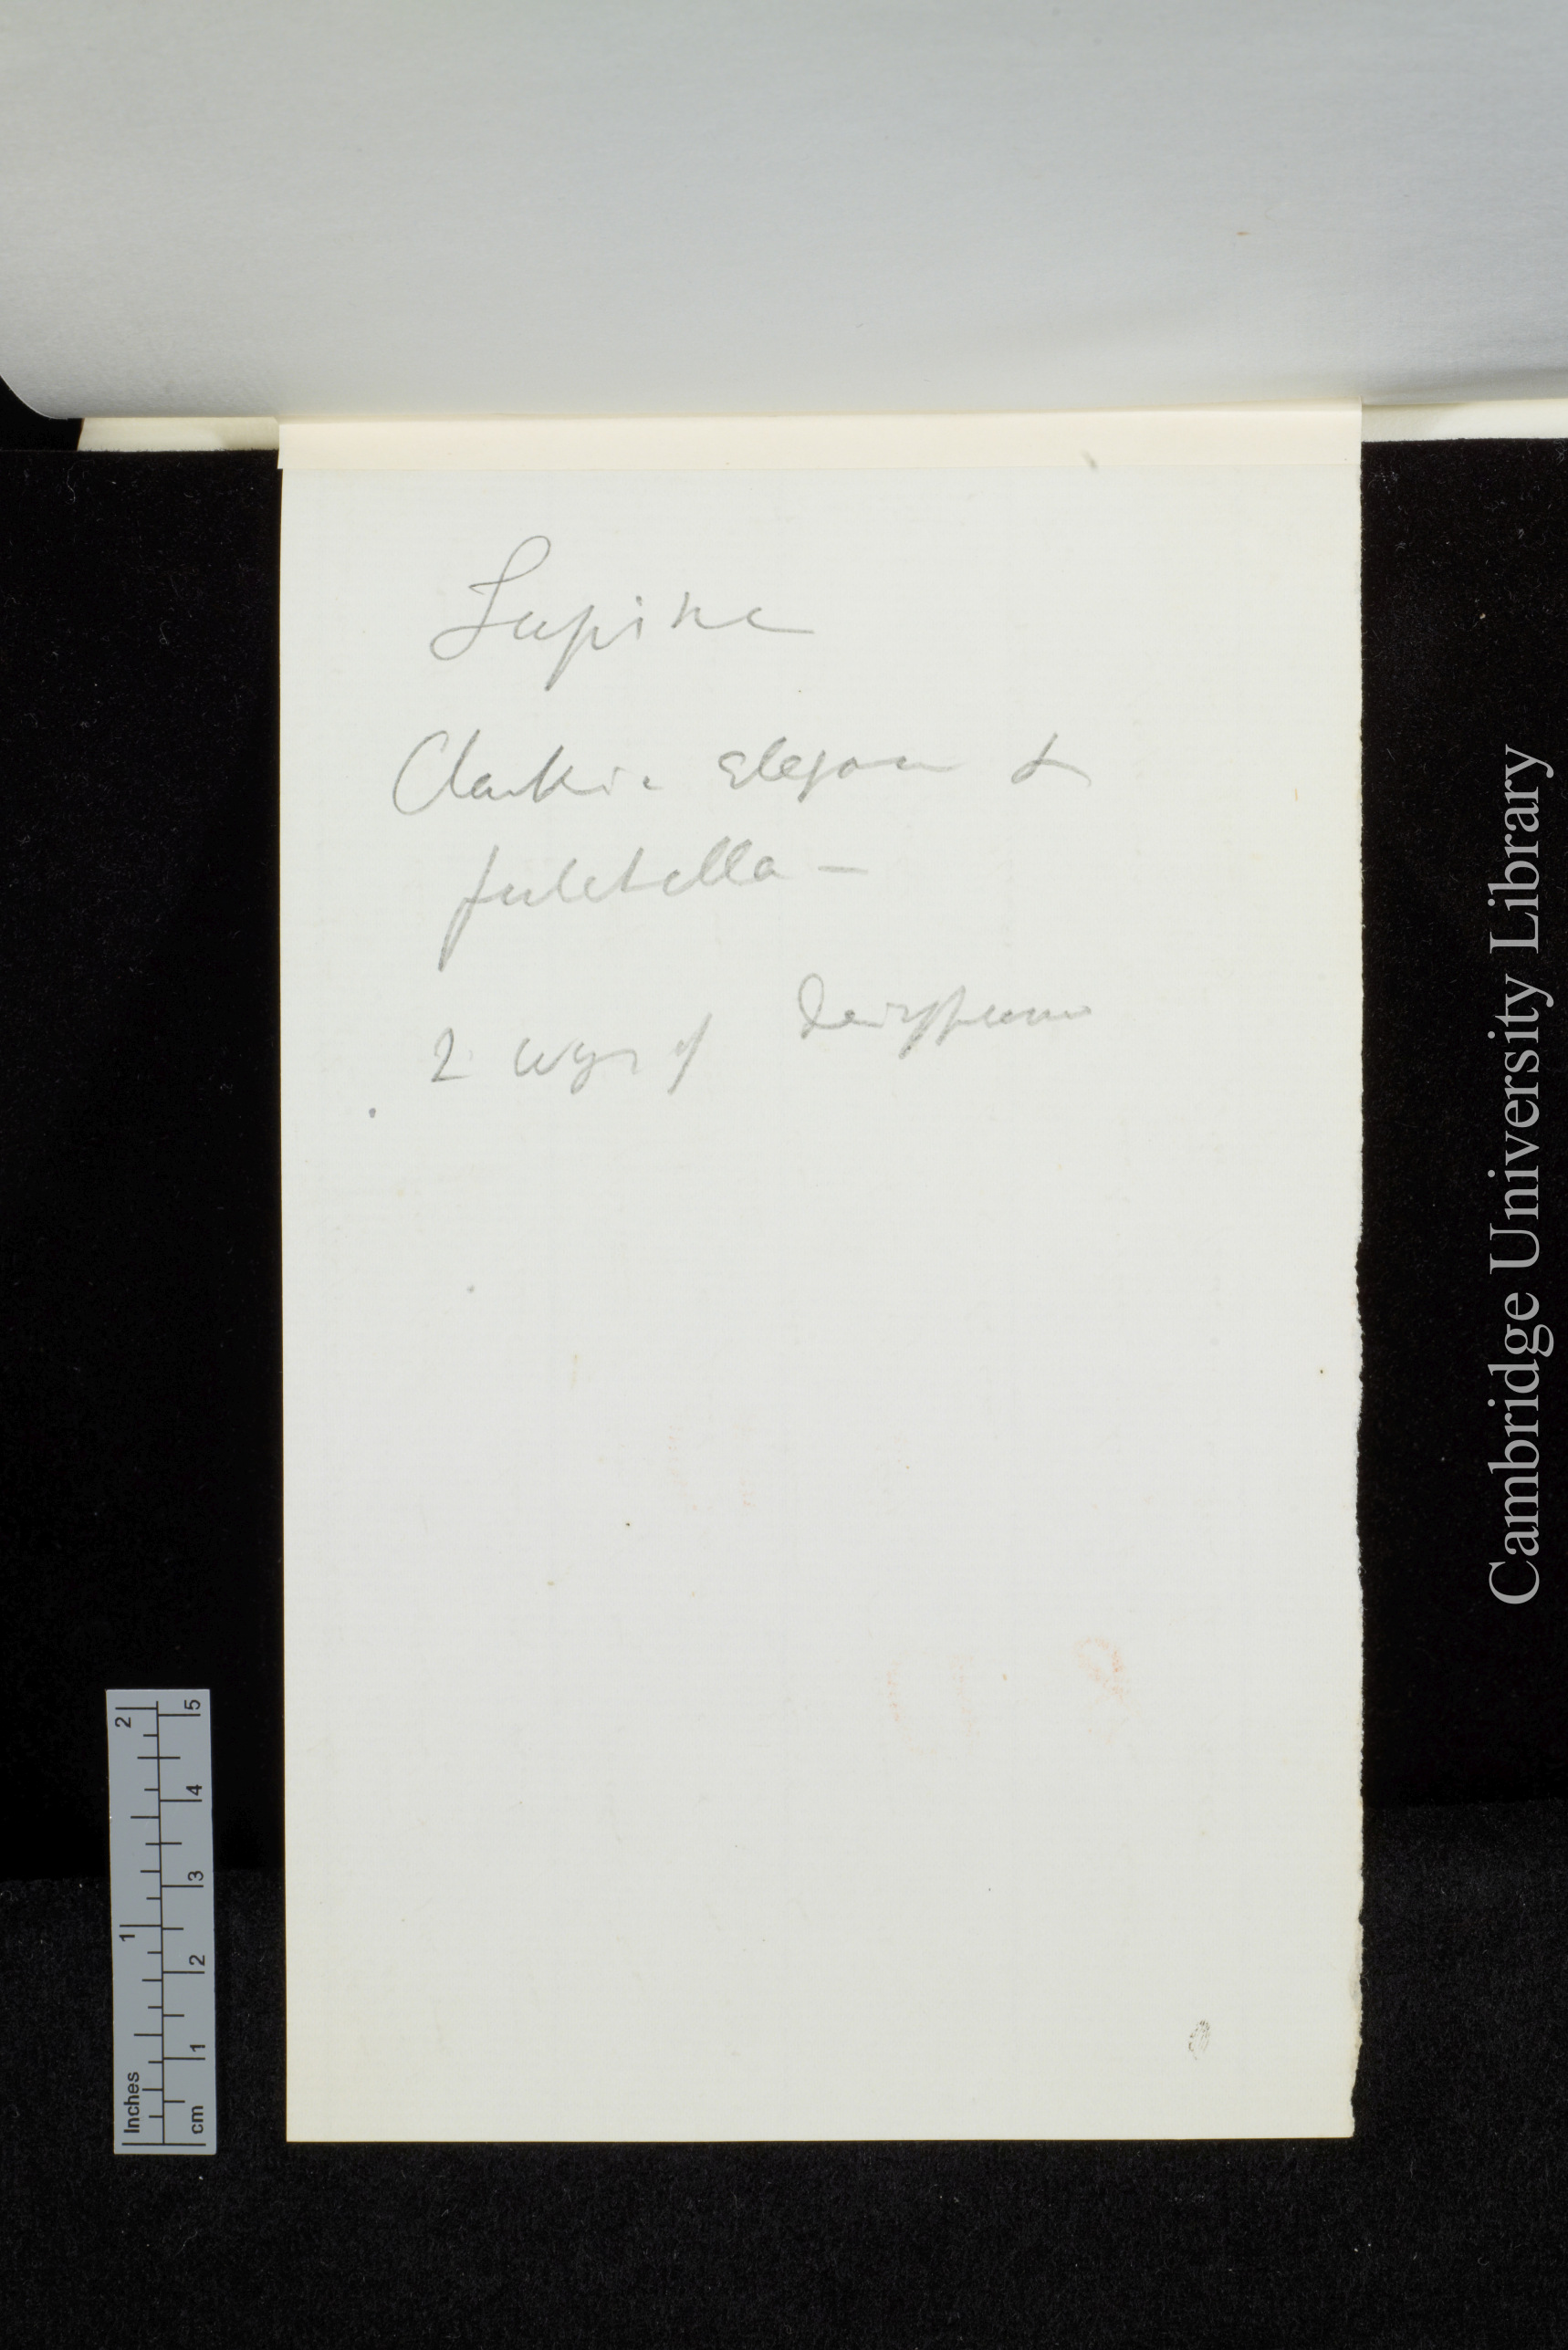 Lupine
Clarkia elegans &
pulchella —
2 ways of
Cambridge University Library
2 5
4
3
1
2
1
Inches
cm